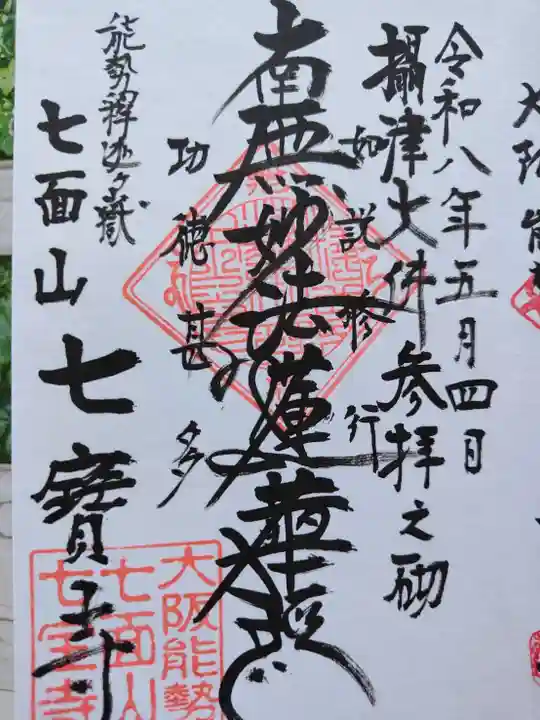 令和八年五月四日
攝津大佛参拝之砌
如説修行
南無妙法蓮華経
功徳甚多
能勢釋迦ヶ嶽
七面山 七寳寺
大阪能勢
七面山
七宝寺